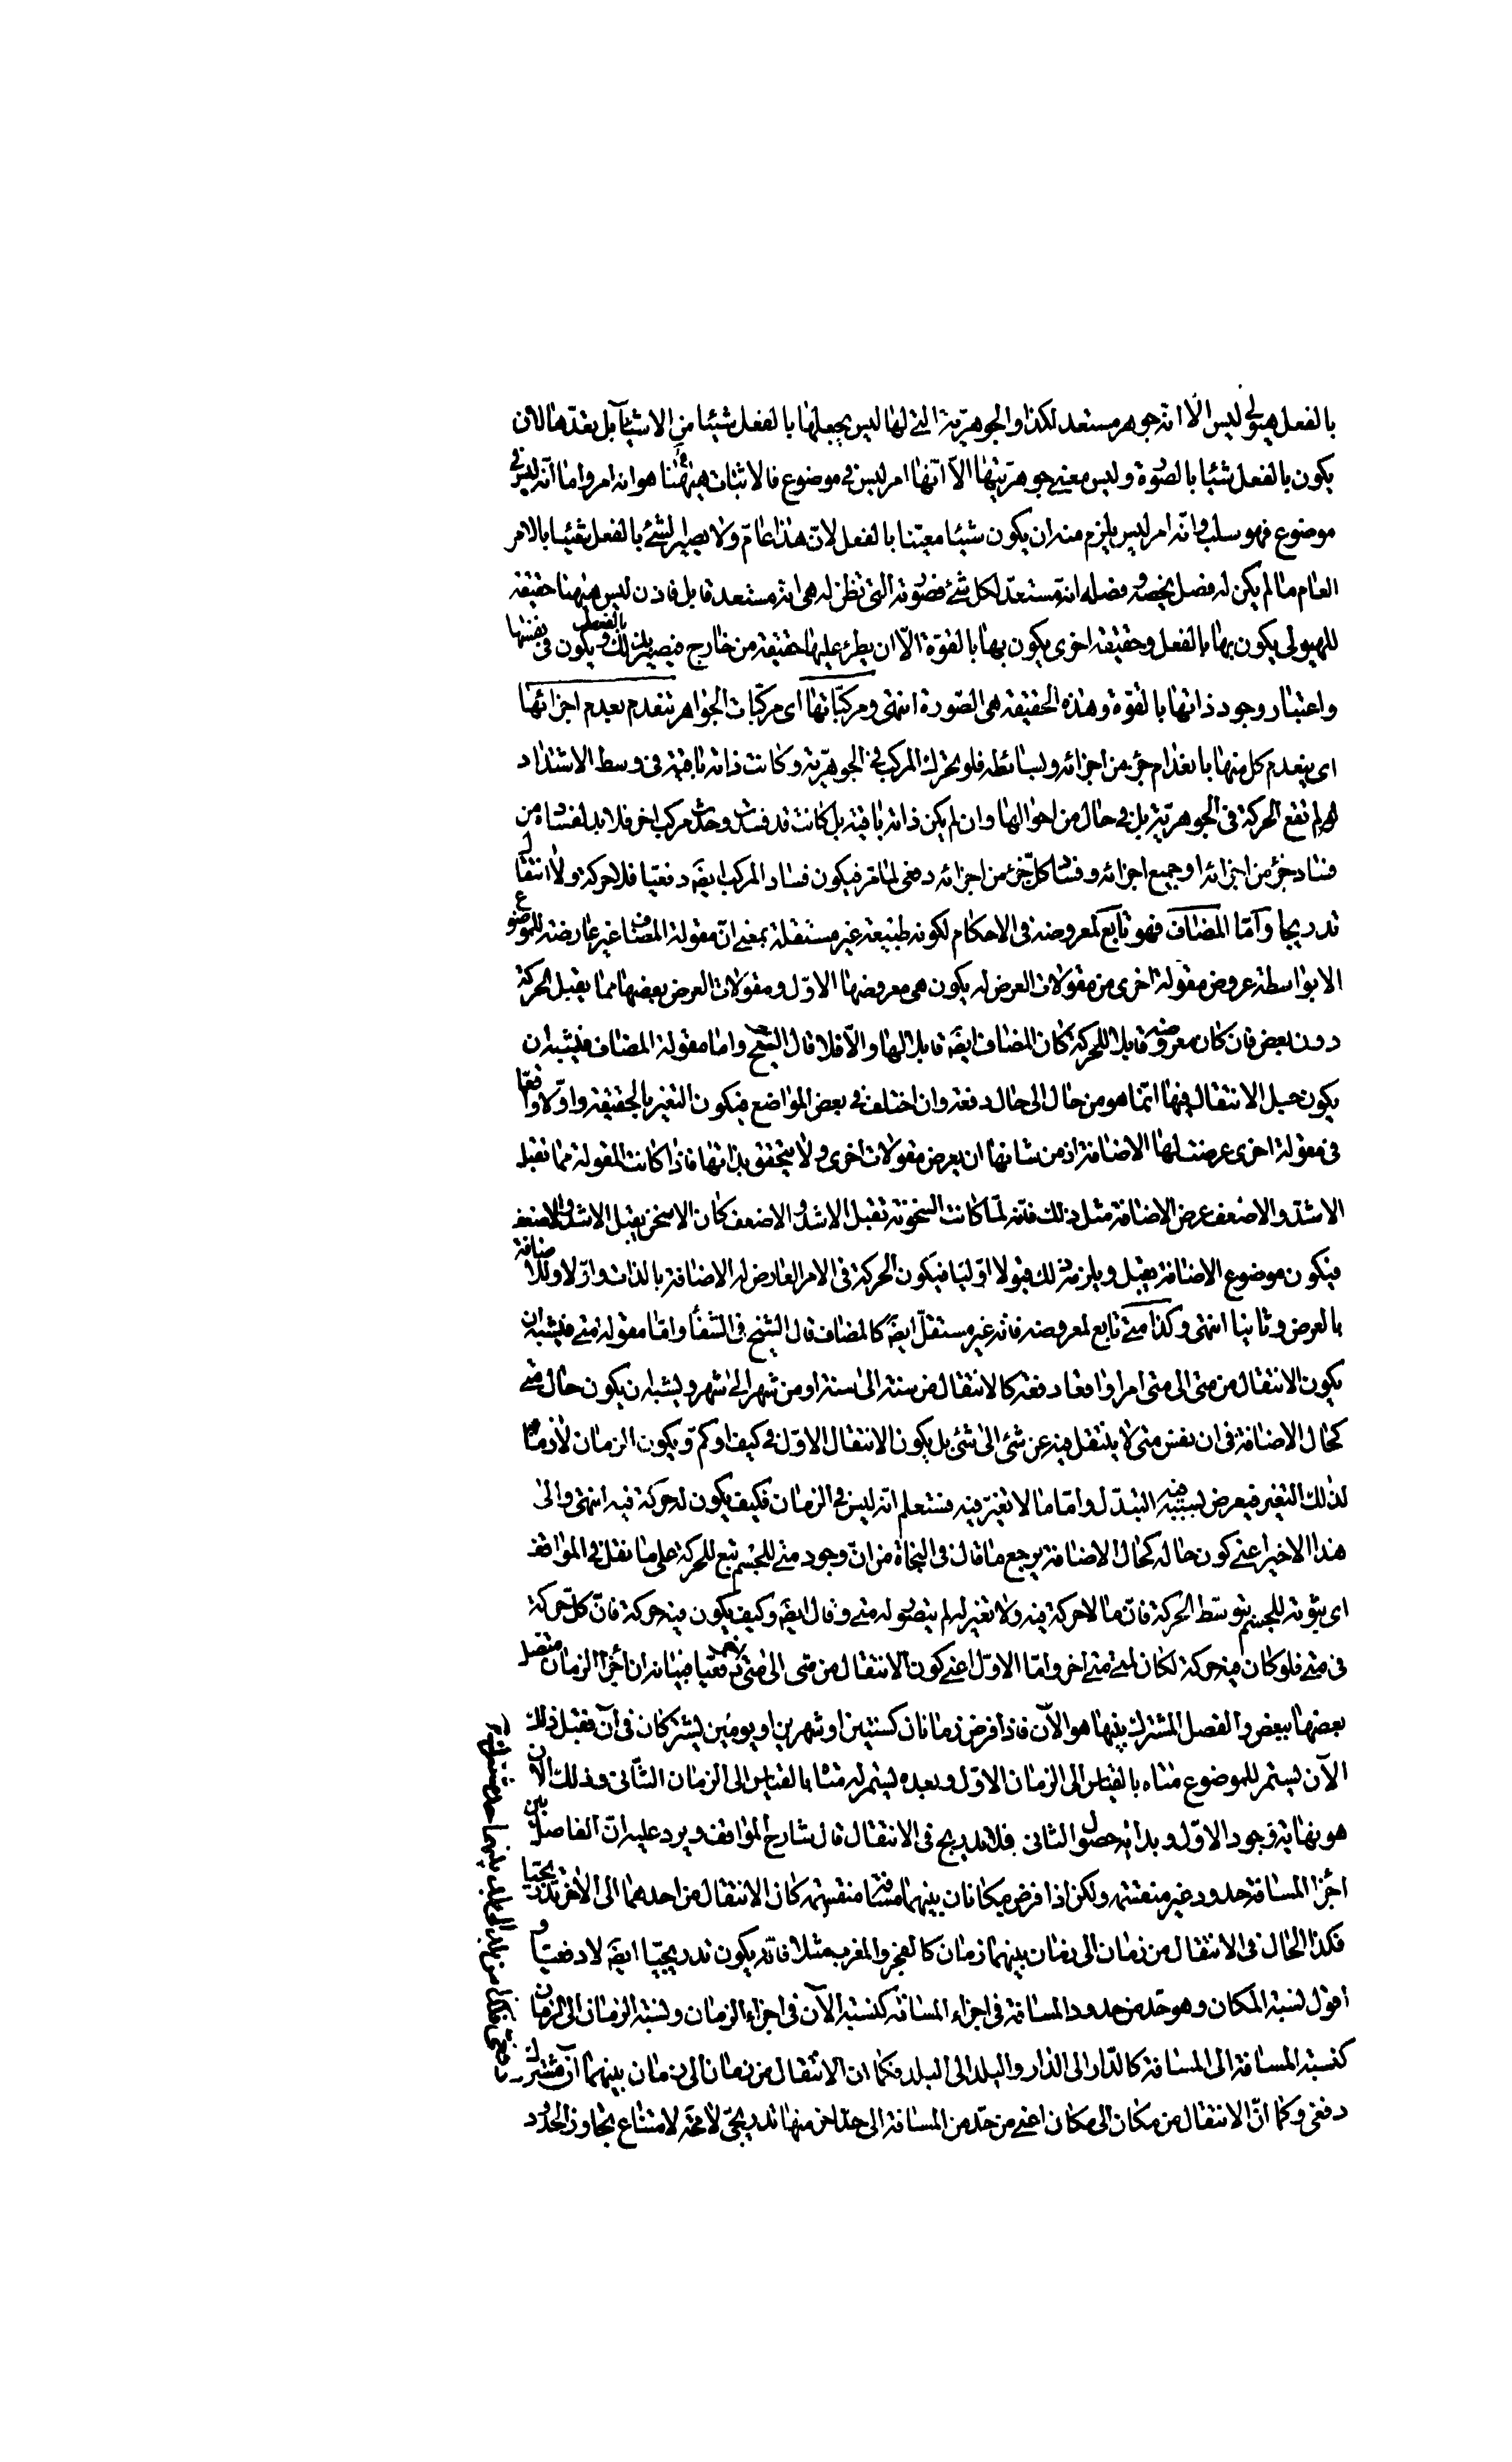 بالفعل هيولى ليس الا انه جوهر مستعد لكذا والجوهرية التى لها ليس يجعلها بالفعل شيئا من الاشياء بل يعدها لان
يكون بالفعل شيئا بالصورة وليس معنى جوهريتها الا انها امر ليس فى موضوع فالاثبات ههنا هو انه امر واما انه ليس فى
موضوع فهو سلب وانه امر ليس يلزم منه ان يكون شيئا معينا بالفعل لان هذا عام ولا يصير الشئ بالفعل شيئا بالامر
العام ما لم يكن له فصل يخصه وفصله انه مستعد لكل شئ فصورته التى تظن له هى انه مستعد قابل فاذن ليس ههنا حقيقة
للهيولى يكون بها بالفعل وحقيقة اخرى يكون بها بالقوة الا ان يطرئ عليها حقيقة من خارج فيصير بذلك بالفعل ويكون فى نفسها
واعتبار وجود ذاتها بالقوة وهذه الحقيقة هى الصورة انتهى ومركباتها اى مركبات الجواهر تنعدم بعدم اجزائها
اى ينعدم كل منها بانعدام جزء من اجزائه وبسائطه فلو تحرك المركب فى الجوهرية وكانت ذاته باقية فى وسط الاشتداد
لم تقع الحركة فى الجوهرية بل فى حال من احوالها وان لم يكن ذاته باقية بل كانت قد فسدت وحدث مركب اخر فلا بد لفساده من
فساد جزء من اجزائه او جميع اجزائه وفساد كل جزء من اجزائه دفعى لما مر فيكون فساد المركب ايضه دفعيا فلا حركة ولا انتقال
تدريجا وآما المضاف فهو تابع لمعروضه فى الاحكام لكونه طبيعة غير مستقلة بمعنى ان مقولة المضاف غير عارضة للموضوع
الا بواسطة عروض مقولة اخرى من مقولات العرض له يكون هى معروضها الاول ومقولات العرض بعضها مما يقبل الحركة
دون بعض فان كان معروضه قابلا للحركة كان المضاف ايضه قابلا لها والا فلا قال الشيخ واما مقولة المضاف فيشبه ان
يكون جل الانتقال فيها انما هو من حال الى حال دفعة وان اختلف فى بعض المواضع فيكون التغير بالحقيقة واولا واقعا
فى مقولة اخرى عرضت لها الاضافة اذ من شانها ان يعرض مقولات اخرى ولا يتحقق بذاتها فاذا كانت المقولة مما تقبل
الاشد والاضعف عرض الاضافة مثل ذلك فانه لما كانت السخونة تقبل الاشد والاضعف كان الاسخن يقبل الاشد والاضعف
فيكون موضوع الاضافة يقبل ويلزمه ذلك قبولا اوليا فيكون الحركة فى الامر العارض له الاضافة بالذات واولا وللاضافة
بالعرض وثانيا انتهى وكذا متى تابع لمعروضه فانه غير مستقل ايضه كالمضاف قال الشيخ فى الشفاء واما مقولة متى فيشبه ان
يكون الانتقال من متى الى متى امرا واقعا دفعة كالانتقال من سنة الى سنة او من شهر الى شهر ويشبه ان يكون حال متى
كحال الاضافة فى ان نفس متى لا ينتقل فيه عن شئ الى شئ بل يكون الانتقال الاول فى كيف او كم ويكون الزمان لازما
لذلك التغير فيعرض بسببه فيه التبدل واما ما لا تغير فيه فستعلم انه ليس فى الزمان فكيف يكون له حركة فيه انتهى والى
هذا الاخير اعنى كون حاله كحال الاضافة يرجع ما قال فى النجاة من ان وجود متى للجسم تبع للحركة على ما نقل فى المواقف
اى ثبوته للجسم بتوسط الحركة فان ما لا حركة فيه ولا تغير له لم يتصور له متى وقال ايضه وكيف يكون فيه حركة فان كل حركة
فى متى فلو كان فيه حركة لكان لمتى متى اخر واما الاول اعنى كون الانتقال من متى الى متى دفعيا فبيانه ان اجزاء الزمان متصل
بعضها ببعض والفصل المشترك بينها هو الآن فاذا فرض زمانان كسنتين او شهرين او يومين يشتركان فى آن فقبل ذلك
الآن يستمر للموضوع متاه بالقياس الى الزمان الاول وبعده يستمر له متا بالقياس الى الزمان الثانى وذلك الآن
هو نهاية وجود الاول وبداية حصول الثانى فلا تدريج فى الانتقال قال شارح المواقف ويرد عليه ان الفاصل بين
اجزاء المسافة حدود غير منقسمة ولكن اذا فرض مكانان بينهما مسافة منقسمة كان الانتقال من احدهما الى الاخر تدريجيا
فكذا الحال فى الانتقال من زمان الى زمان بينهما زمان كالفجر والمغرب مثلا فانه يكون تدريجيا ايضه لا دفعيا و
اقول نسبة المكان وهو حد من حدود المسافة فى اجزاء المسافة كنسبة الآن فى اجزاء الزمان ونسبة الزمان الى الزمان
كنسبة المسافة الى المسافة كالدار الى الدار والبلد الى البلد فكما ان الانتقال من زمان الى زمان بينهما آن مشترك
دفعى وكما ان الانتقال من مكان الى مكان اعنى من حد من المسافة الى حد اخر منها تدريجى لا محة لامتناع تجاوز الحدود
دفعى فكذا من بلد الى بلد بينهما حد مشترك